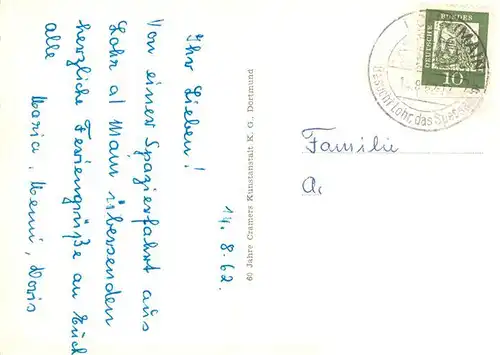 14.8.62.
Ihr Lieben!
Von einer Spazierfahrt aus
Lohr a/ Main übersenden
herzliche Feriengrüße an Euch
alle
Maria, Menni, Doris
60 Jahre Cramers Kunstanstalt K. G., Dortmund
Familie
A.
DEUTSCHE BUNDES
10
Besucht Lohr, das Spessart